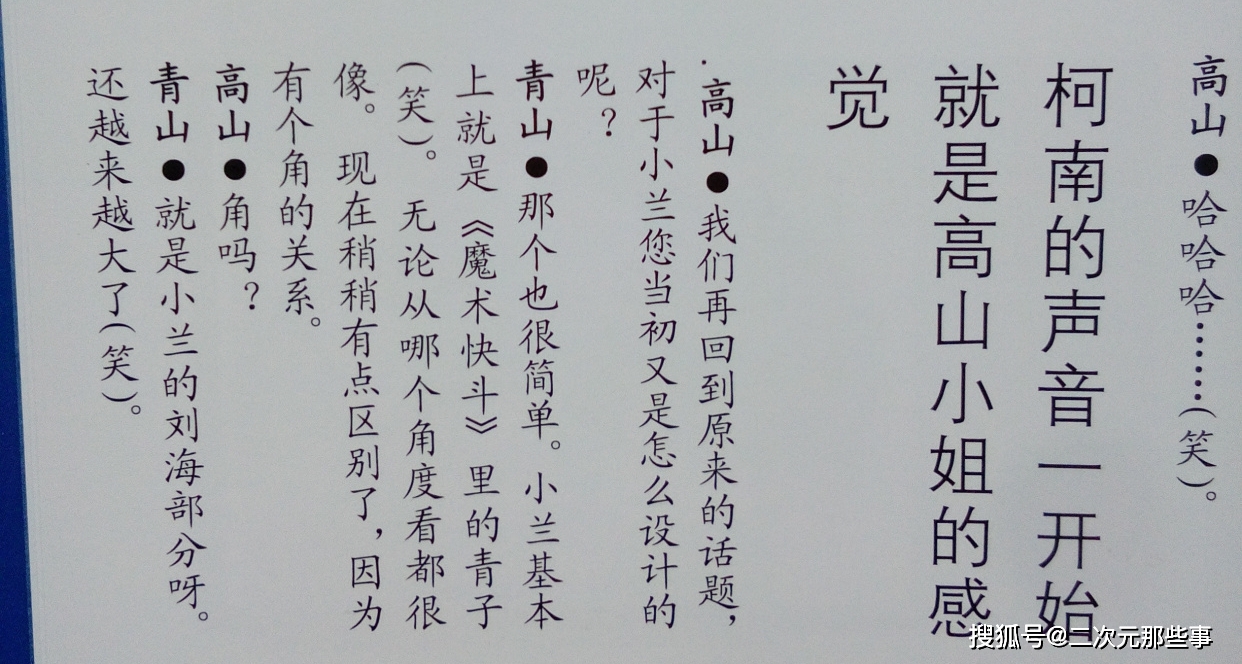 高山●哈哈哈……(笑)。
柯南的声音一开始
就是高山小姐的感
觉
高山●我们再回到原来的话题，
对于小兰您当初又是怎么设计的
呢？
青山●那个也很简单。小兰基本
上就是《魔术快斗》里的青子
(笑)。无论从哪个角度看都很
像。现在稍稍有点区别了，因为
有个角的关系。
高山●角吗？
青山●就是小兰的刘海部分呀。
还越来越大了(笑)。
搜狐号@二次元那些事